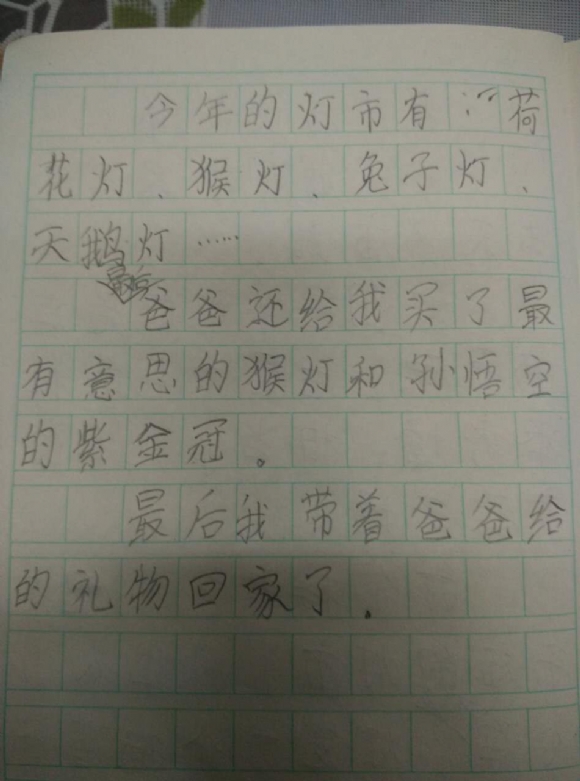 今年的灯市有荷
花灯、猴灯、兔子灯、
天鹅灯……
爸爸还给我买了最
有意思的猴灯和孙悟空
的紫金冠。
最后我带着爸爸给
的礼物回家了.